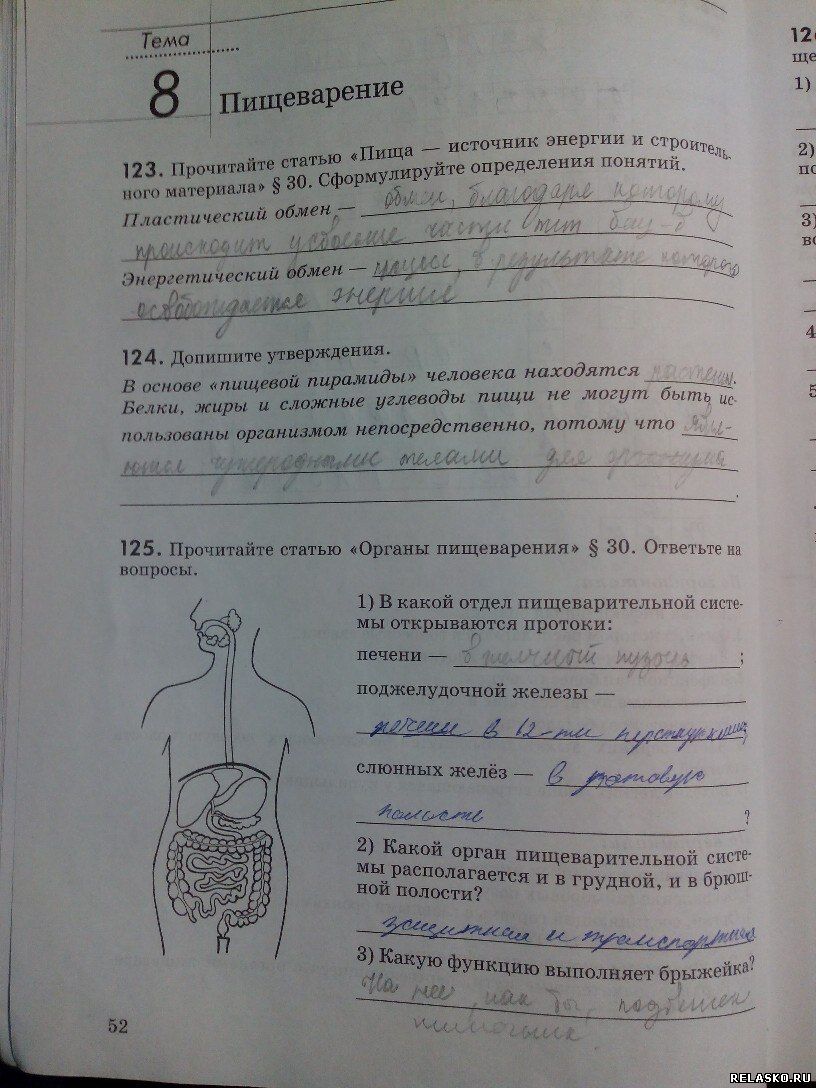 Тема
8 Пищеварение
123. Прочитайте статью «Пища — источник энергии и строитель-
ного материала» § 30. Сформулируйте определения понятий.
Пластический обмен — обмен, благодаря которому
происходит усвоение
Энергетический обмен — процесс, в результате которого
освобождается энергия
124. Допишите утверждения.
В основе «пищевой пирамиды» человека находятся
Белки, жиры и сложные углеводы пищи не могут быть ис-
пользованы организмом непосредственно, потому что явл-
яются чужеродными телами для организма
125. Прочитайте статью «Органы пищеварения» § 30. Ответьте на
вопросы.
1) В какой отдел пищеварительной систе-
мы открываются протоки:
печени — в желчный пузырь ;
поджелудочной железы —
в 12-ти
слюнных желёз — в ротовую
полость ?
2) Какой орган пищеварительной систе-
мы располагается и в грудной, и в брюш-
ной полости?
защитная и транспортная
3) Какую функцию выполняет брыжейка?
На ней, как бы, подвешен
52
12
ще
1)
2)
по
3)
во
4
5
RELASKO.RU